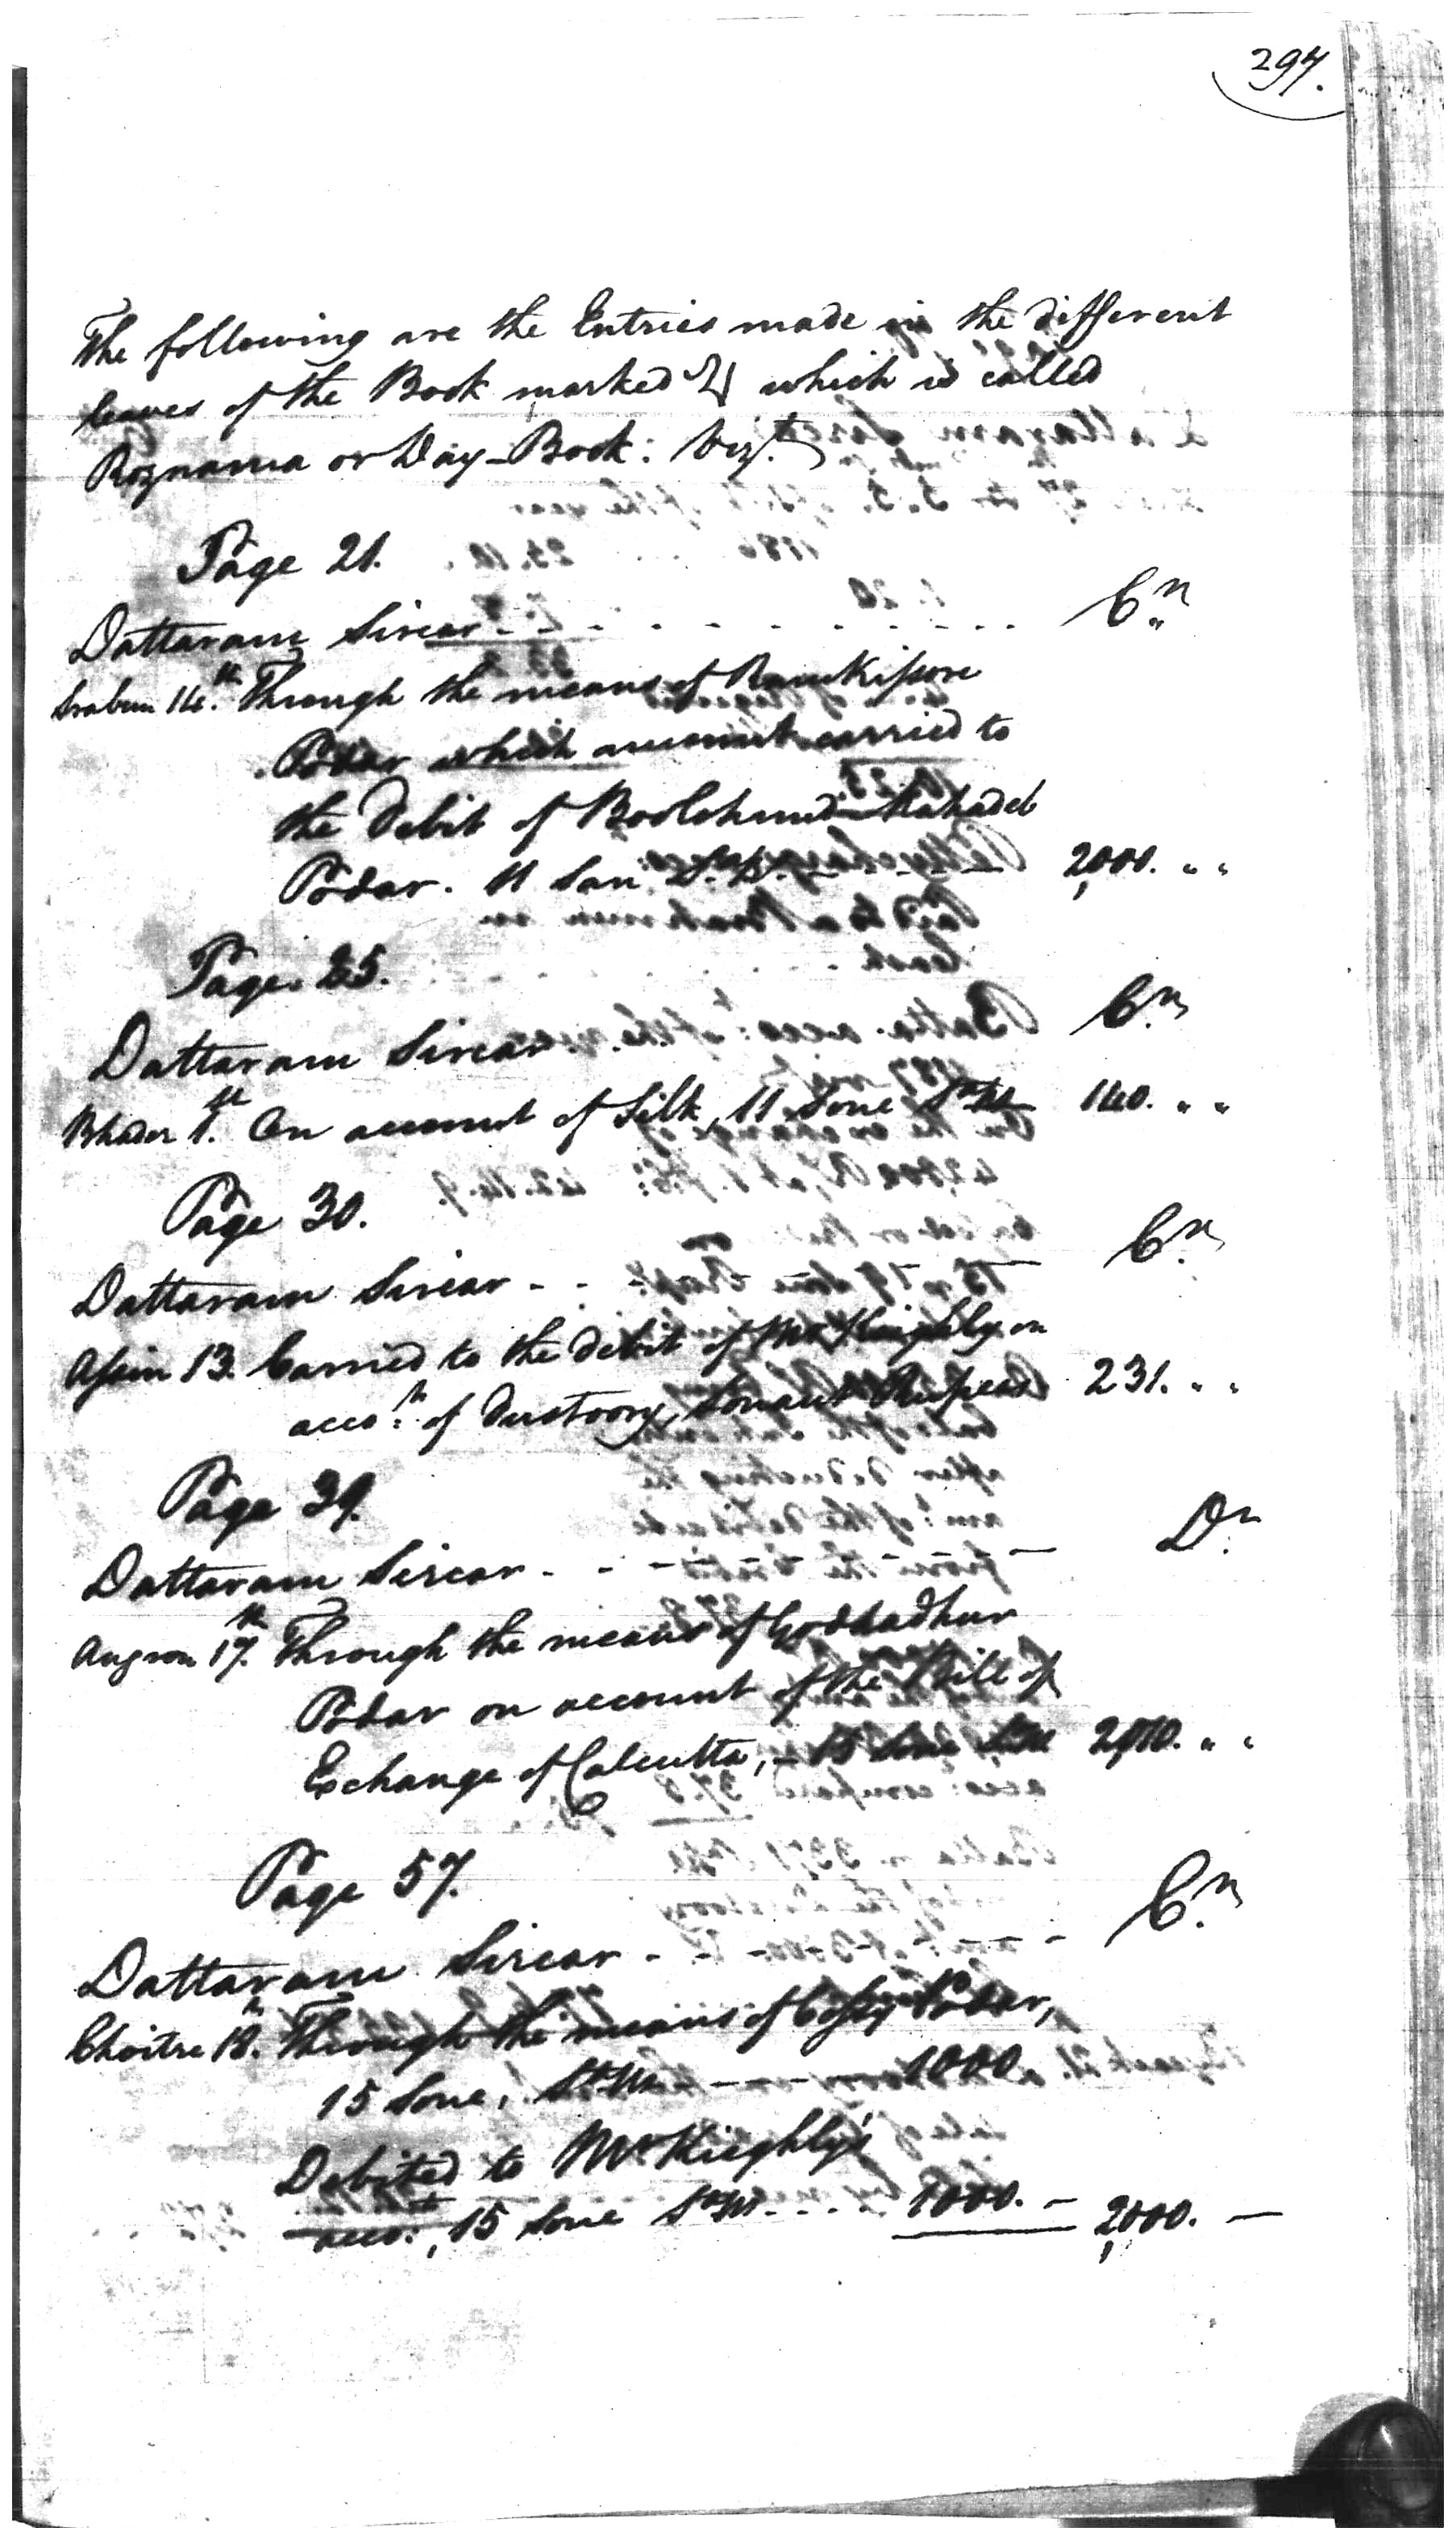 297.
The following are the Entries made in the different
leaves of the Book marked which is called
Roznama or Day-Book: Vizt.
Page 21.
Dattaram Sircar - - - - - - - - - Cr.
Srabun 14th. Through the means of Ramkissore
Podar which amount carried to
the debit of Boolchund Mahadeb
Podar. 11 San Sa. Rs. - - - - 2,000. " "
Page. 25.
Dattaram Sircar - - Cr.
Bhader 1st. On account of Silk, 11 Sone Sa Rs 140. " "
Page 30.
Dattaram Sircar - - - Cr.
Assin 13. Carried to the debit of Mr Kieghly on
accot. of dustoory, Sonaut Rupees 231. " "
Page 39.
Dattaram Sircar - - - - - - Dr.
Augron 17th. Through the means of Godhadhur
Podar on account of the Bill of
Exchange of Calcutta, - 15 Sone "  "
Page 57.
Dattaram Sircar - - - - - Cr.
Choitre 18th. Through the means of Podar,
15 Sone, Sa Rs - - - - 1000.
Debited to Mr Kieghly's
accot., 15 Sone Sa Rs. - - - 1000. - 2,000. —